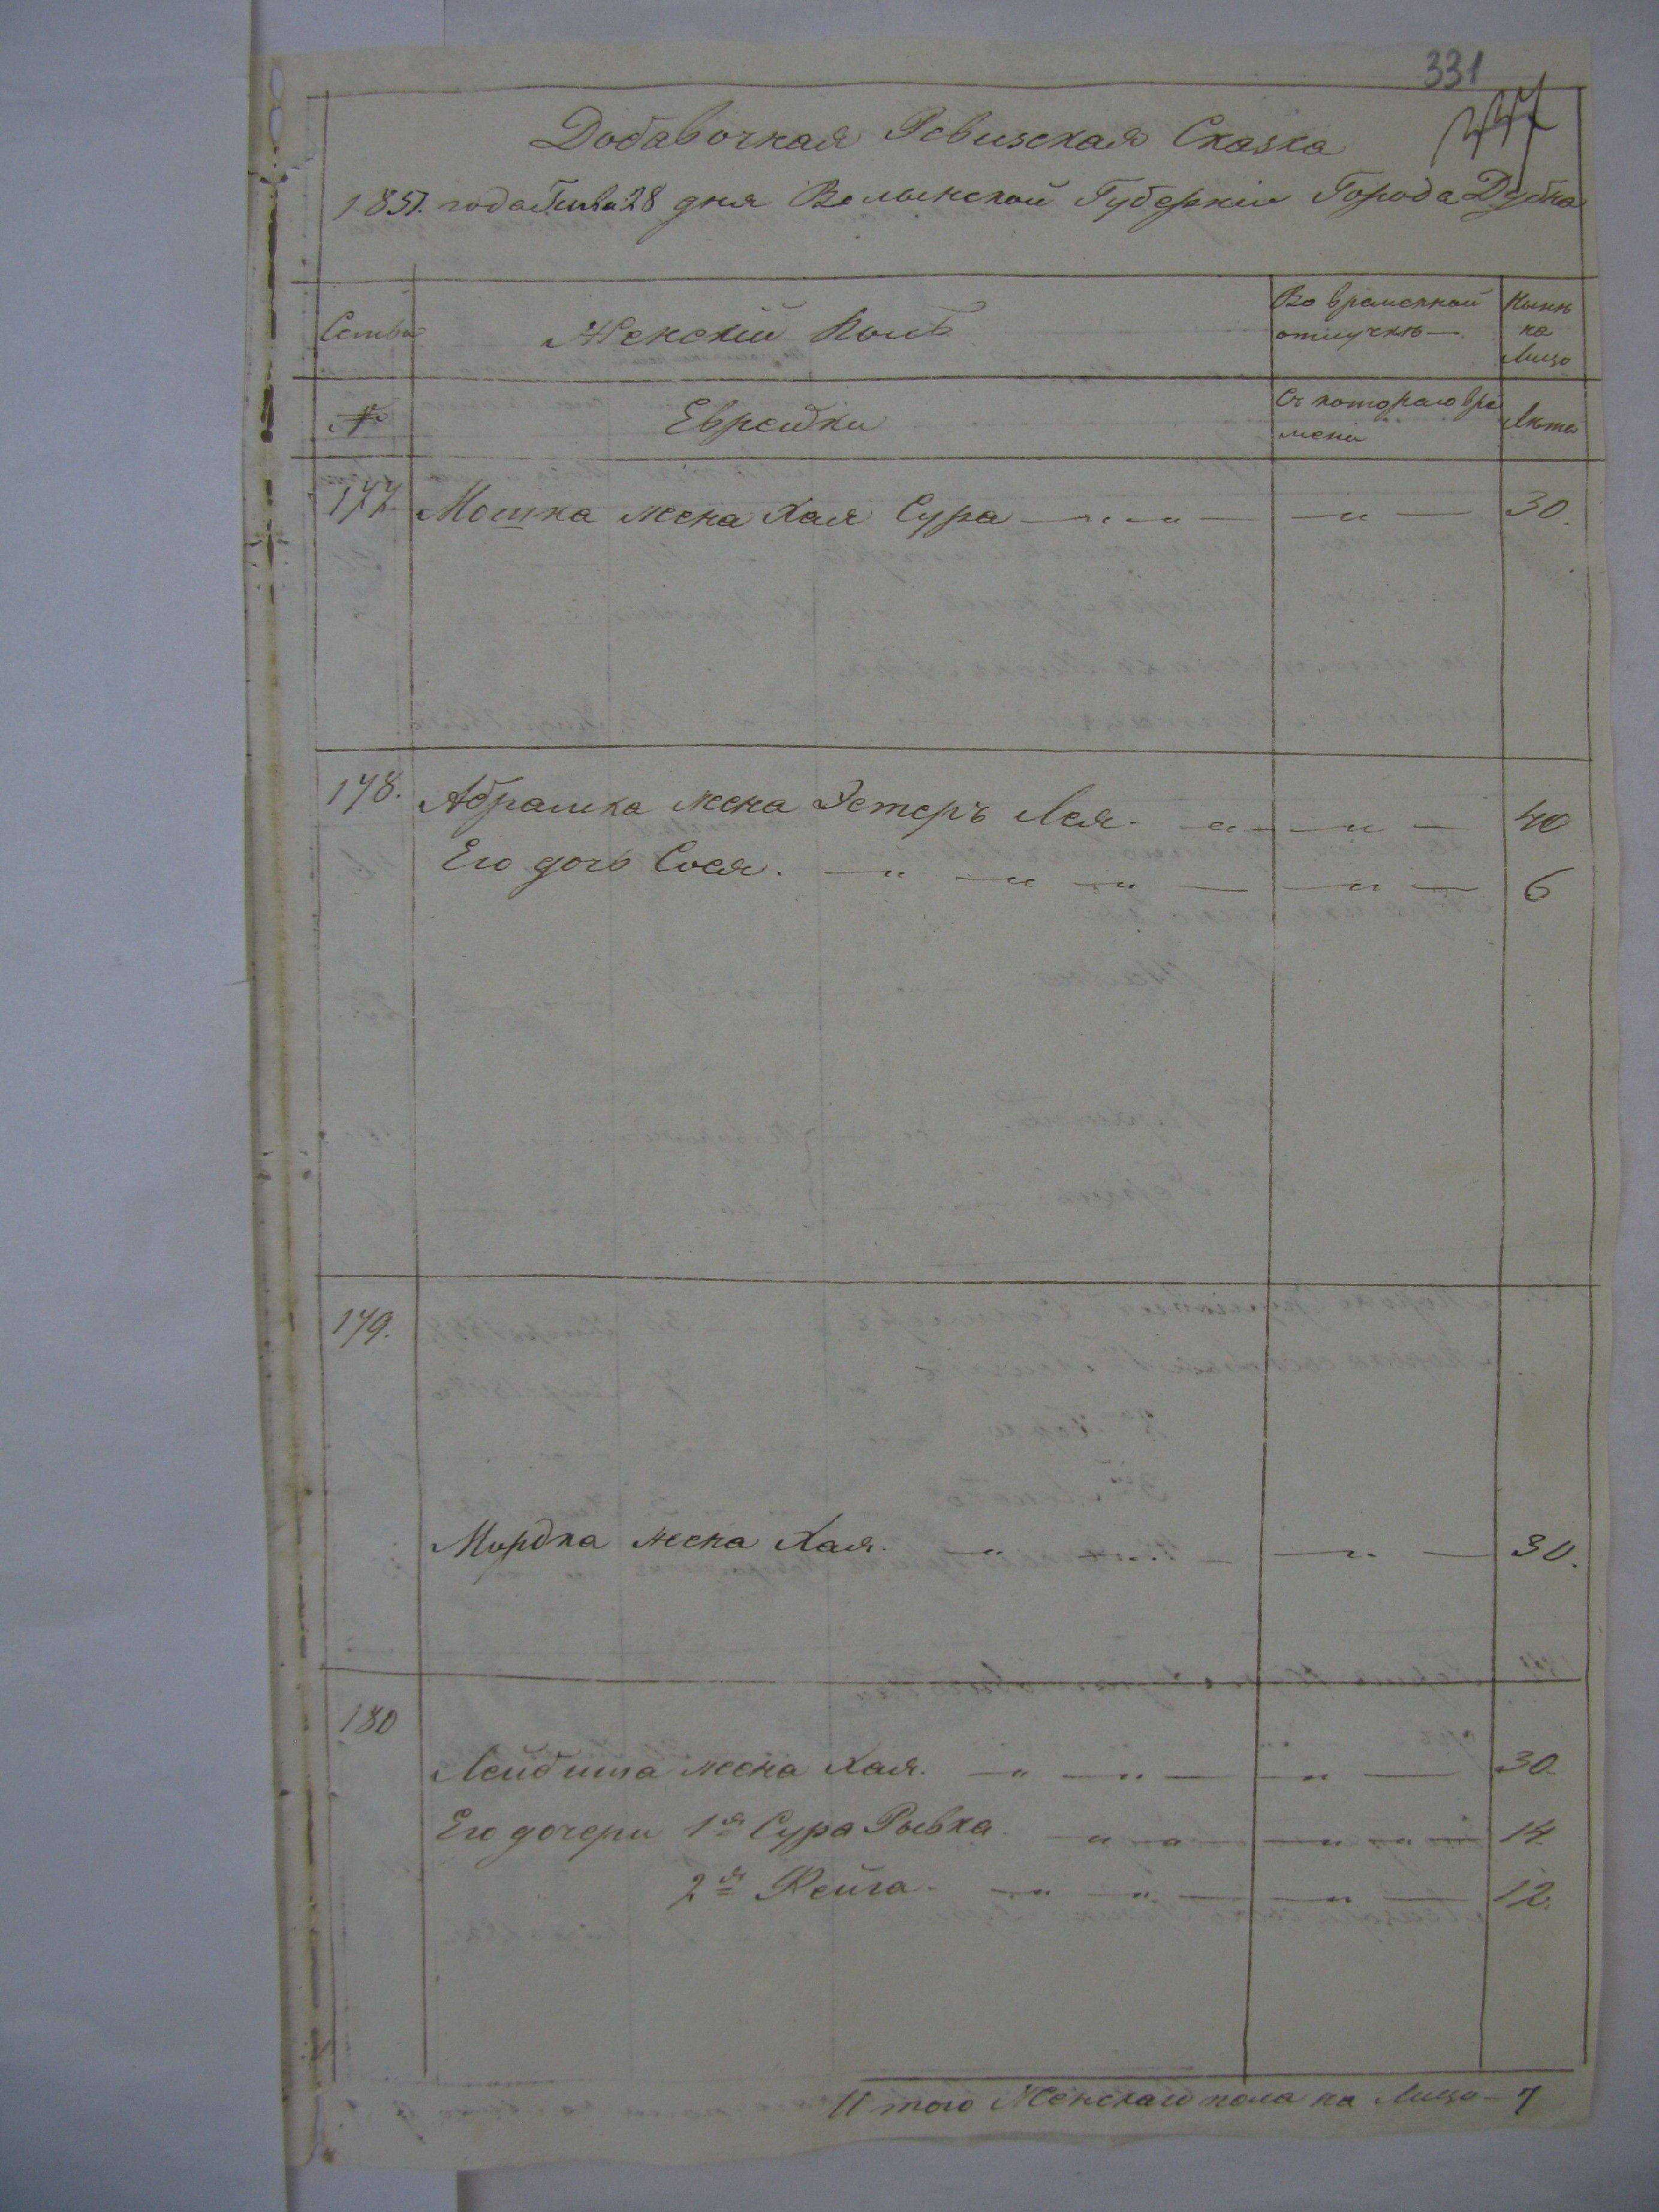 331
Добавочная Ревизская Сказка
1851. года Генва 28 дня Волынской Губернии Города Дубна
Семьи
Женскій Полъ
Во временной
отлучкѣ —
Нынѣ
на
Лицо
№
Еврейки
Съ котораго вре
мени
Лѣта
177 Мошка жена Хая Сура — " — " — — " — 30.
178. Абрамка жена Эстеръ Лея. — " — — " — 40
Его дочь Сося. — " — " — " — — " — 6
179.
Мордка жена Хая. — " — " — — " — 30.
180
Лейбиша жена Хая. — " — " — — " — 30.
Его дочери 1я Сура Рывка. — " " — — " " — 14.
2я Фейга. — " " — — " — 12.
Итого Женскаго пола на Лицо — 7